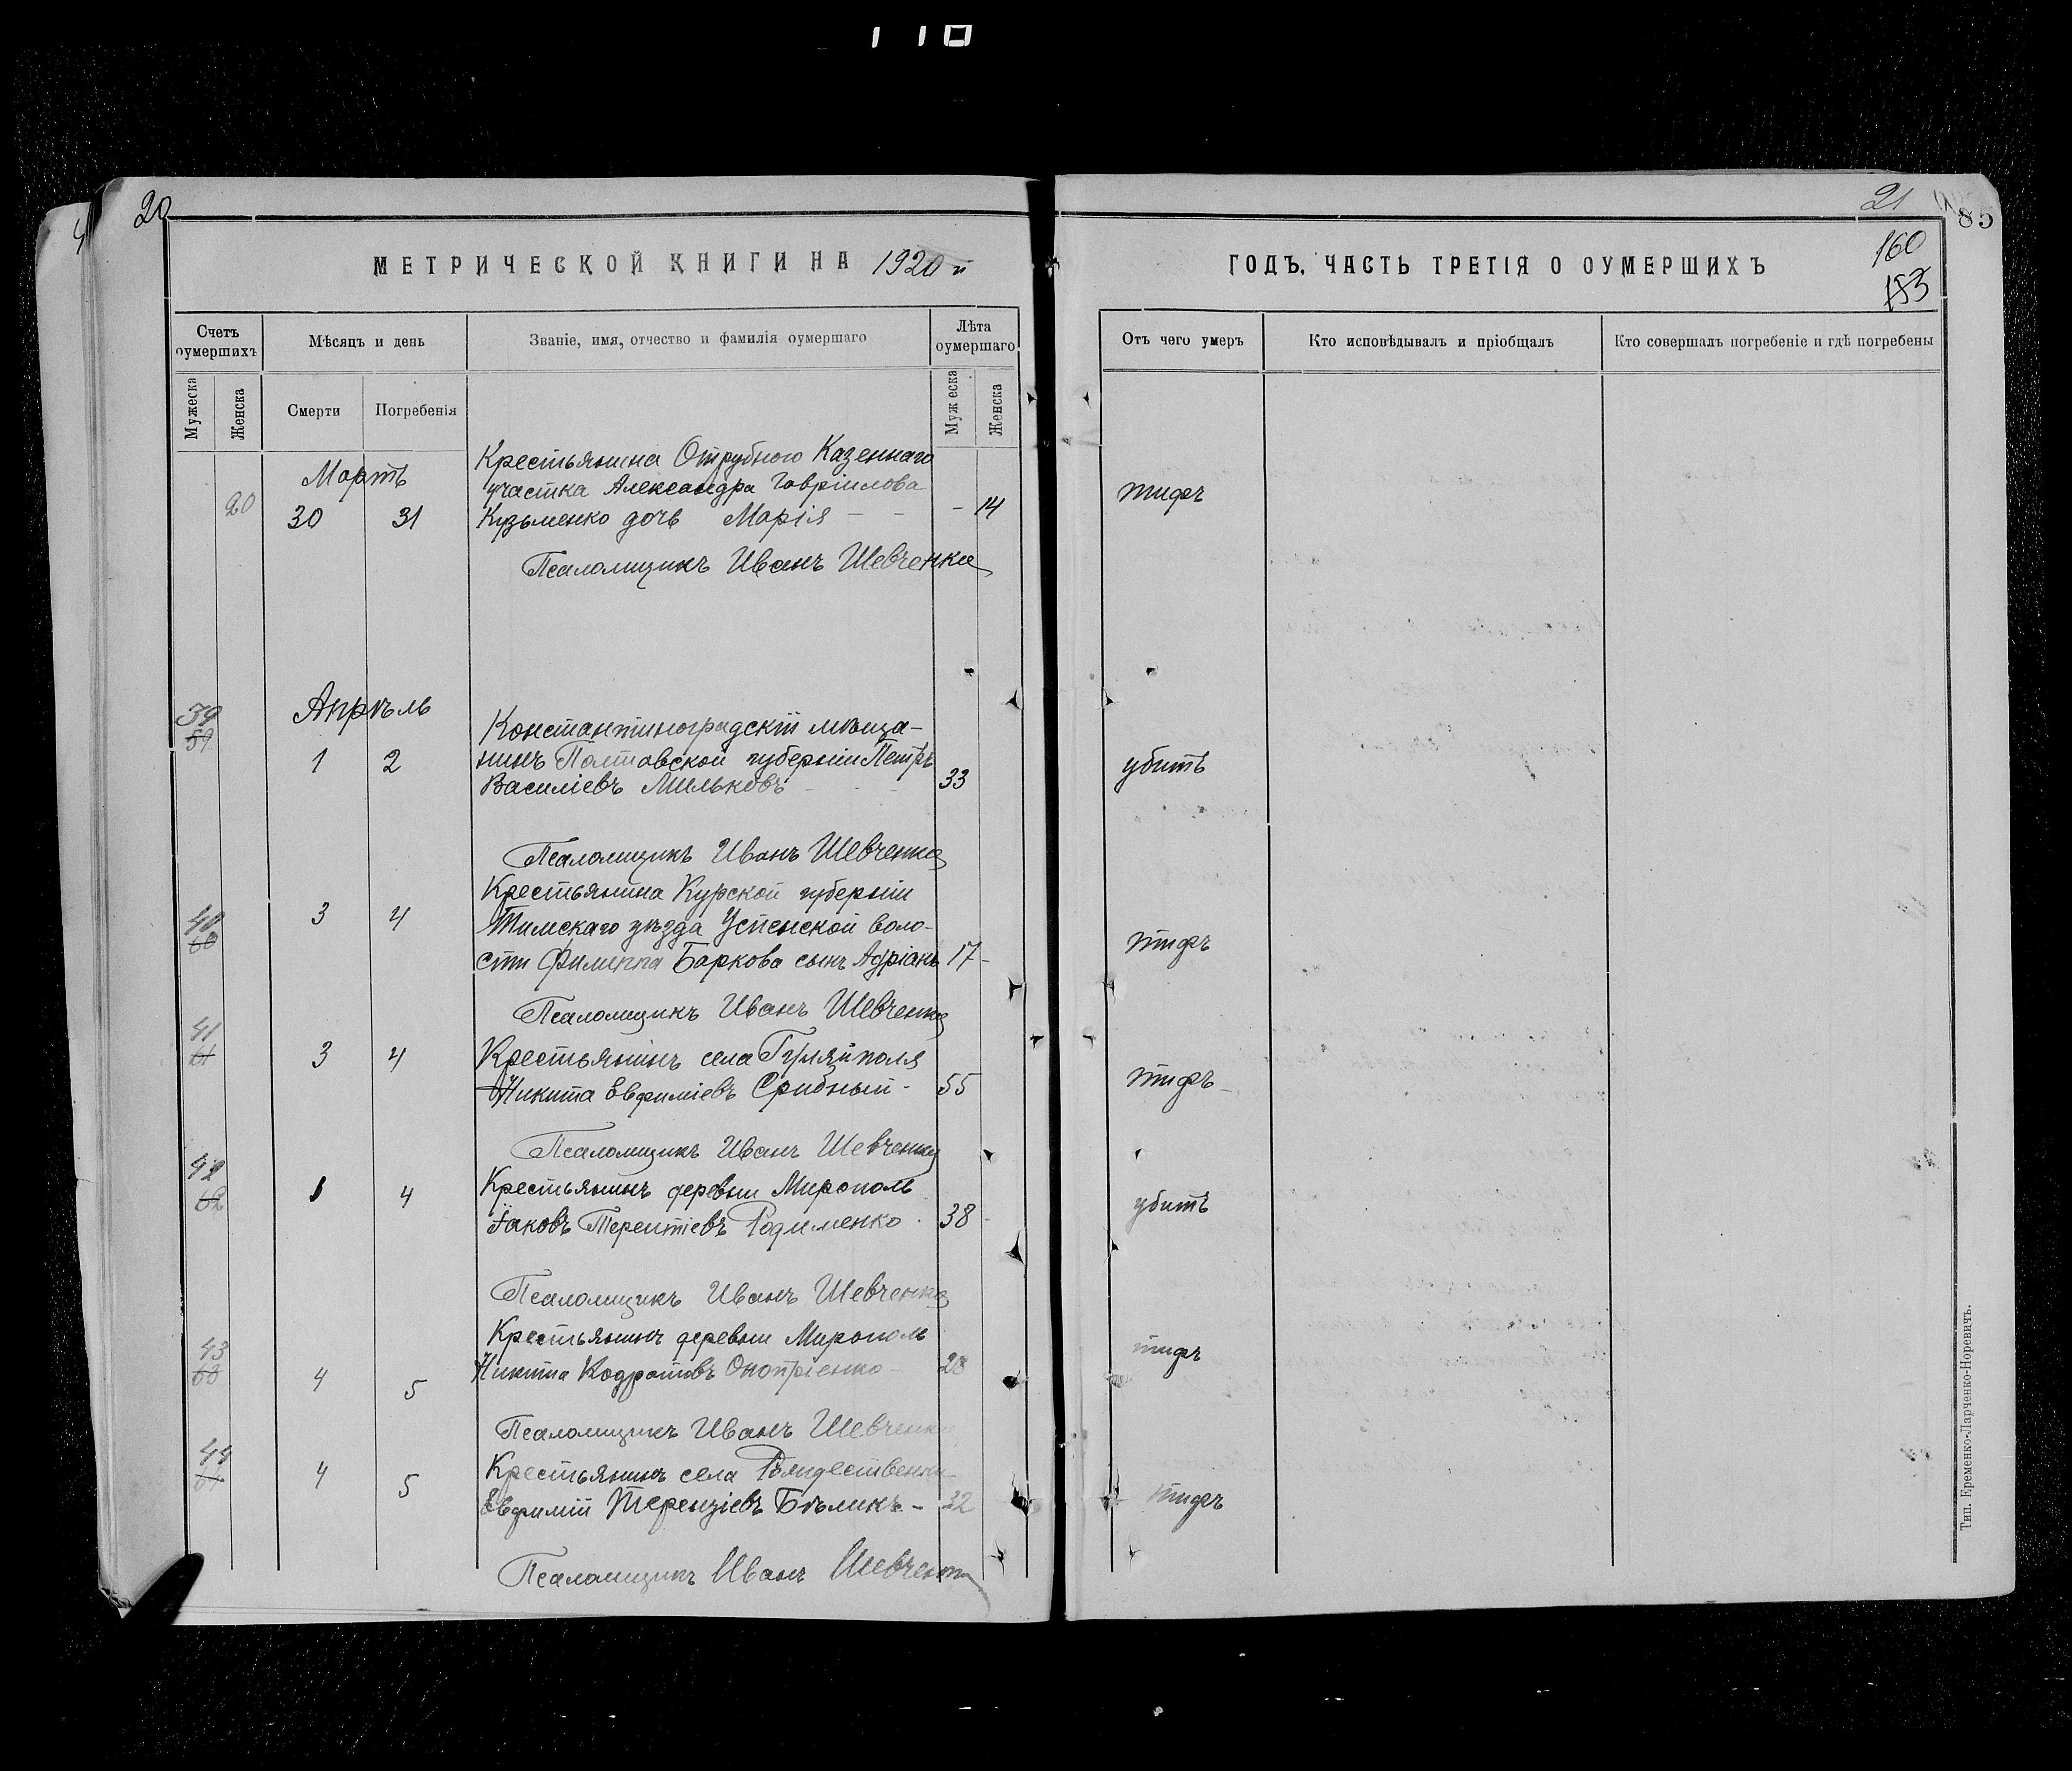 110
20
21
85
160
153
МЕТРИЧЕСКОЙ КНИГИ НА 1920 й
ГОДЪ, ЧАСТЬ ТРЕТІЯ О ОУМЕРШИХЪ
Счетъ оумершихъ
Мѣсяцъ и день
Званіе, имя, отчество и фамилія оумершаго
Лѣта оумершаго
Отъ чего умеръ
Кто исповѣдывалъ и пріобщалъ
Кто совершалъ погребеніе и гдѣ погребены
Мужеска
Женска
Смерти
Погребенія
Мужеска
Женска
Мартъ
Крестьянина Отрубного Казеннаго
участка Александра Гавріилова
20 30 31 Кузьменко дочь Марія - - - 14 тифъ
Псаломщикъ Иванъ Шевченко
Апрѣль
39
59
Константиноградскій мѣща-
1 2 нинъ Полтавской губерніи Петръ
Василіевъ Мильковъ 33 убитъ
Псаломщикъ Иванъ Шевченко
Крестьянина Курской губерніи
40
60
3 4 Тимскаго уѣзда Успенской воло-
сти Филиппа Баркова сынъ Адріанъ 17 - тифъ
Псаломщикъ Иванъ Шевченко
41
61
3 4 Крестьянинъ села Гуляйполя
Никита Евфиміевъ Срибный - 55 тифъ
Псаломщикъ Иванъ Шевченко
42
62
1 4 Крестьянинъ деревни Мирополь
Іаковъ Терентіевъ Родименко 38 убитъ
Псаломщикъ Иванъ Шевченко
Крестьянинъ деревни Мирополь
43
63
4 5 Никита Кодратовъ Онопріенко 28 тифъ
Псаломщикъ Иванъ Шевченко
44
64
4 5 Крестьянинъ села Рождественки
Евфимій Терензіевъ Бѣликъ - 32 тифъ
Псаломщикъ Иванъ Шевченко
Тип. Еременко-Ларченко-Норевичъ.